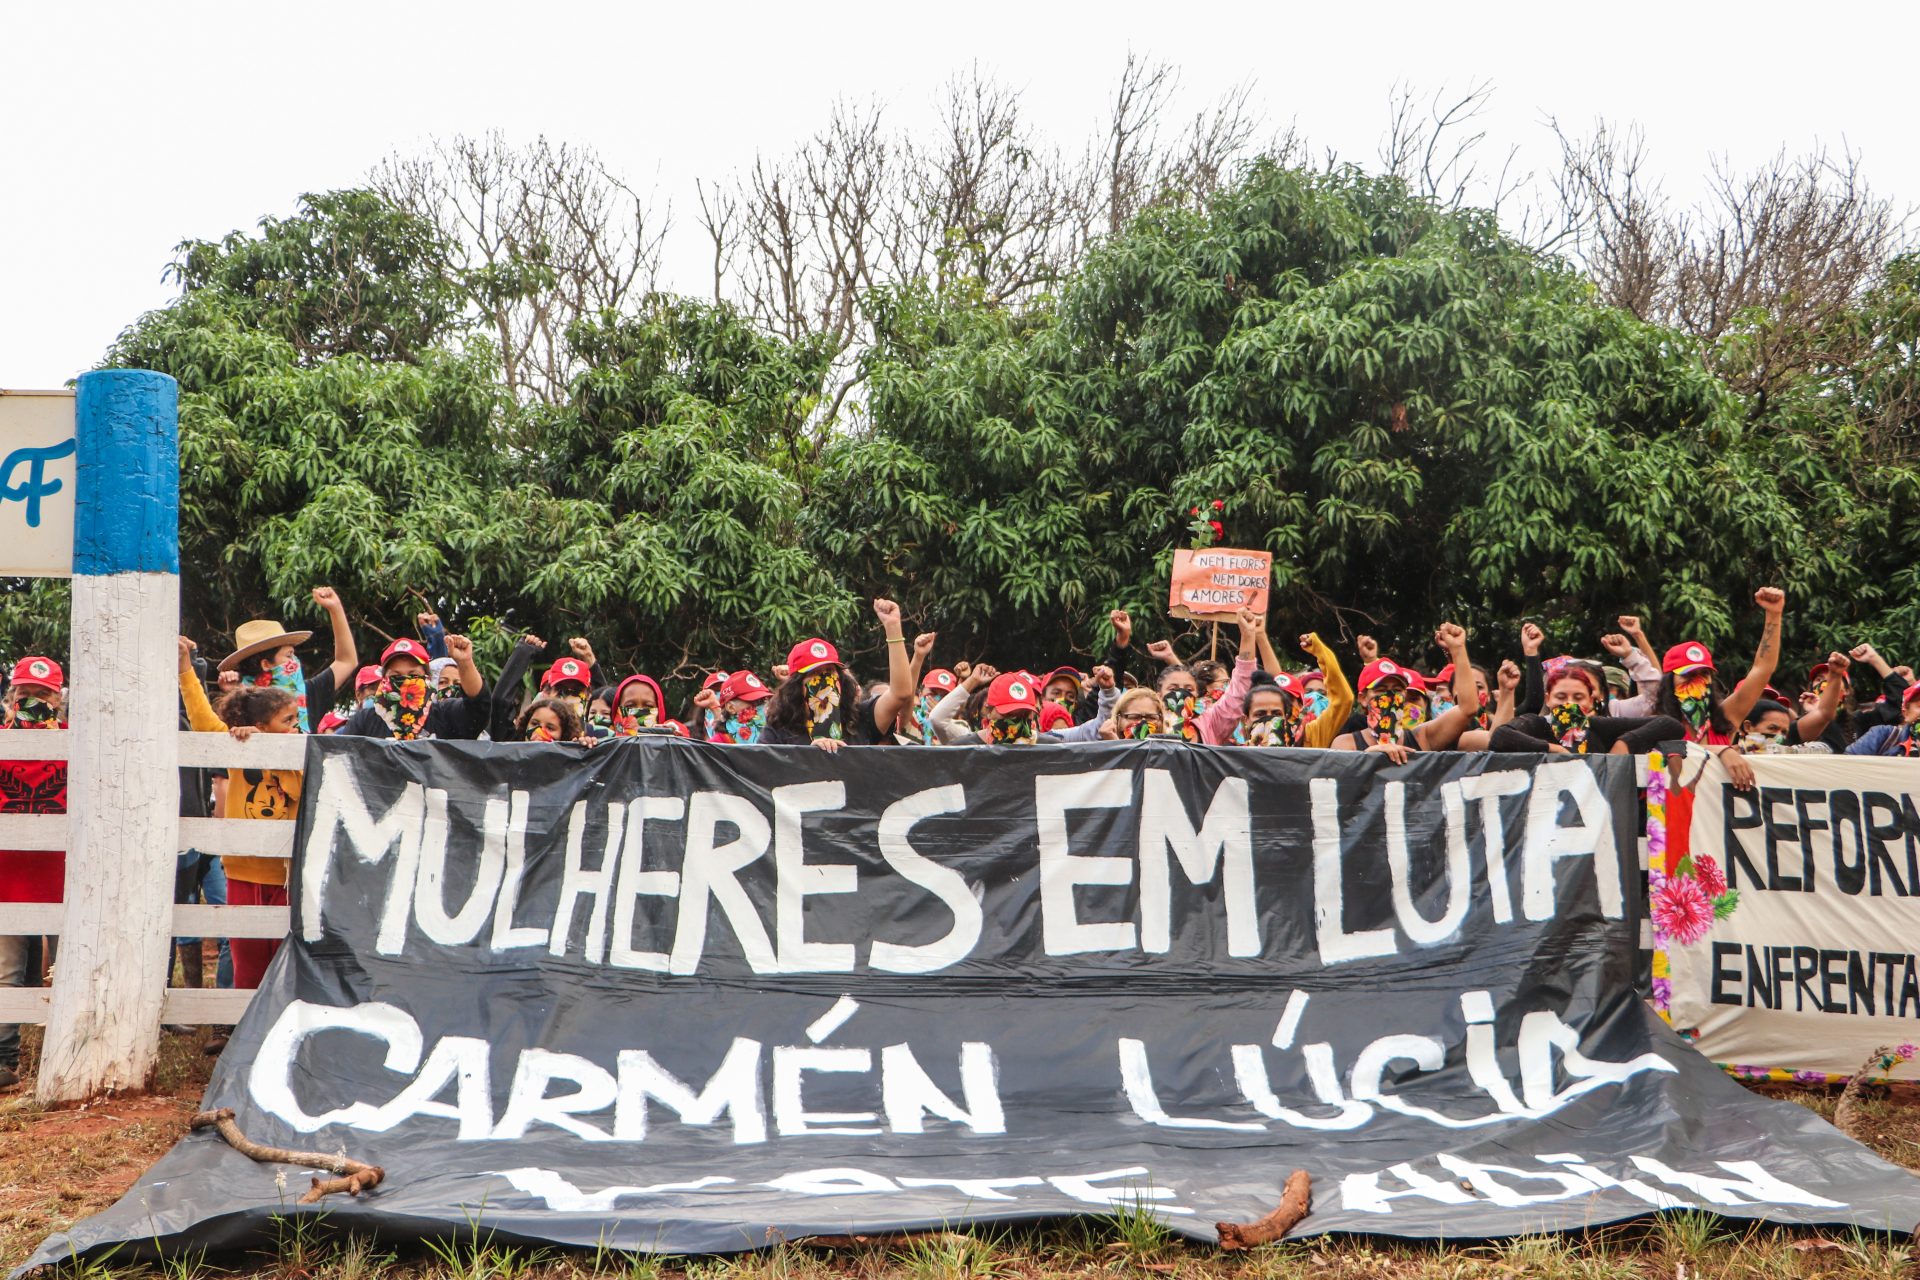 F
NEM FLORES
NEM DORES
AMORES!
MULHERES EM LUTA
CARMÉN LÚCIA
VOTE ADIN
REFOR
ENFRENTA